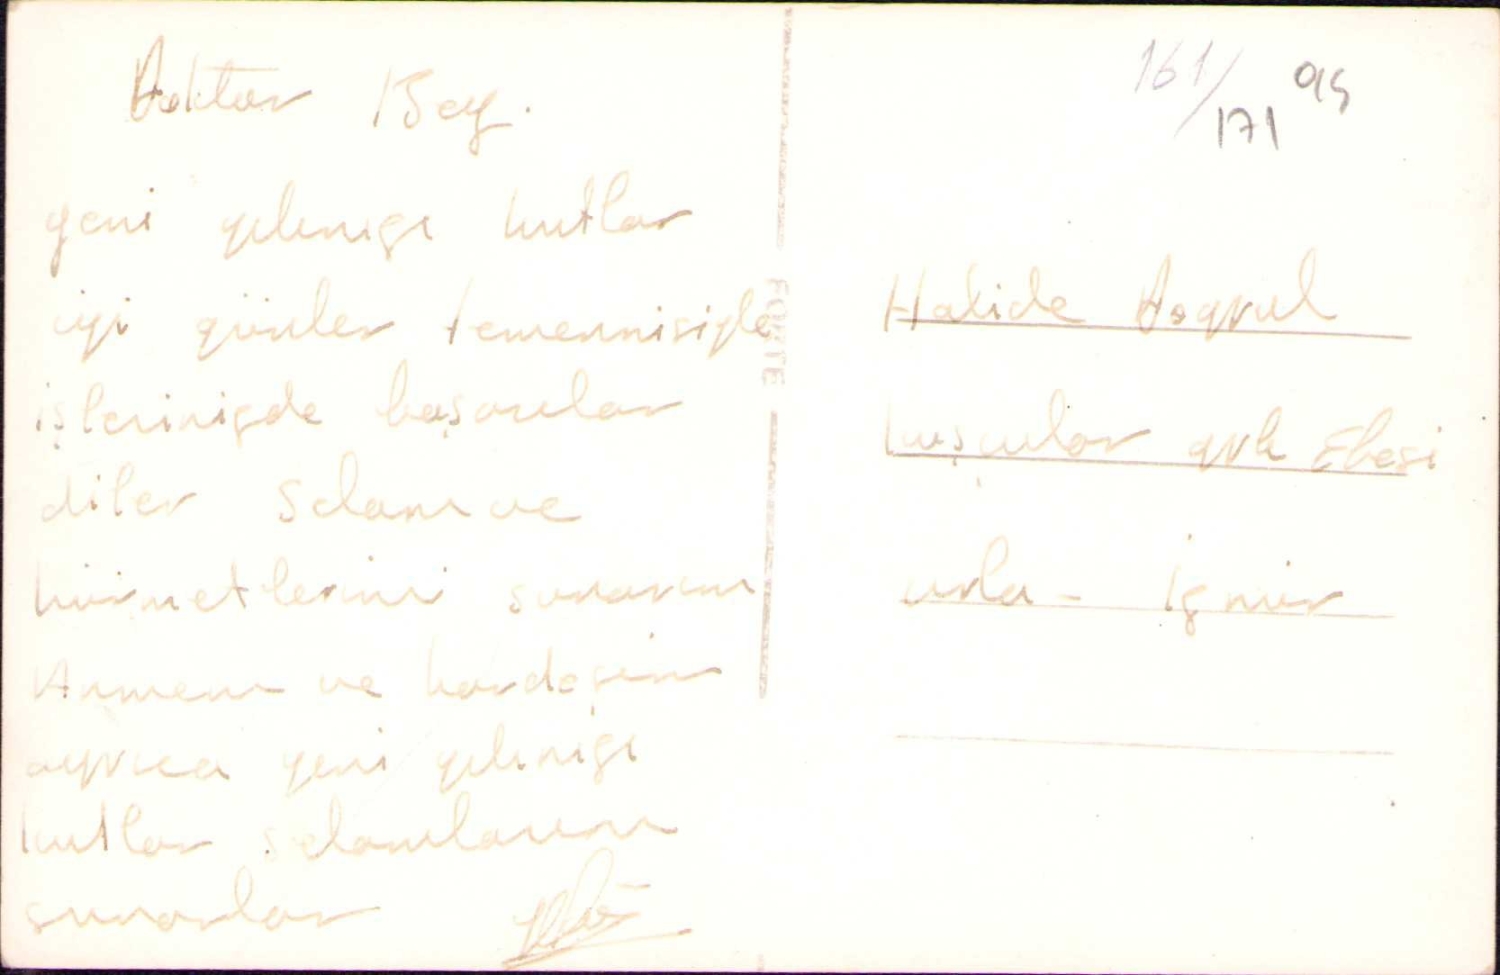 Doktor Bey.
yeni yılınızı kutlar
iyi günler temennisiyle
işlerinizde başarılar
diler Selam ve
hürmetlerimi sunarım
Annem ve kardeşim
ayrıca yeni yılınızı
kutlar selamlarını
sunarlar
FORTE
161/171 95
Halide
kuşçular grb Ebesi
urla - İzmir